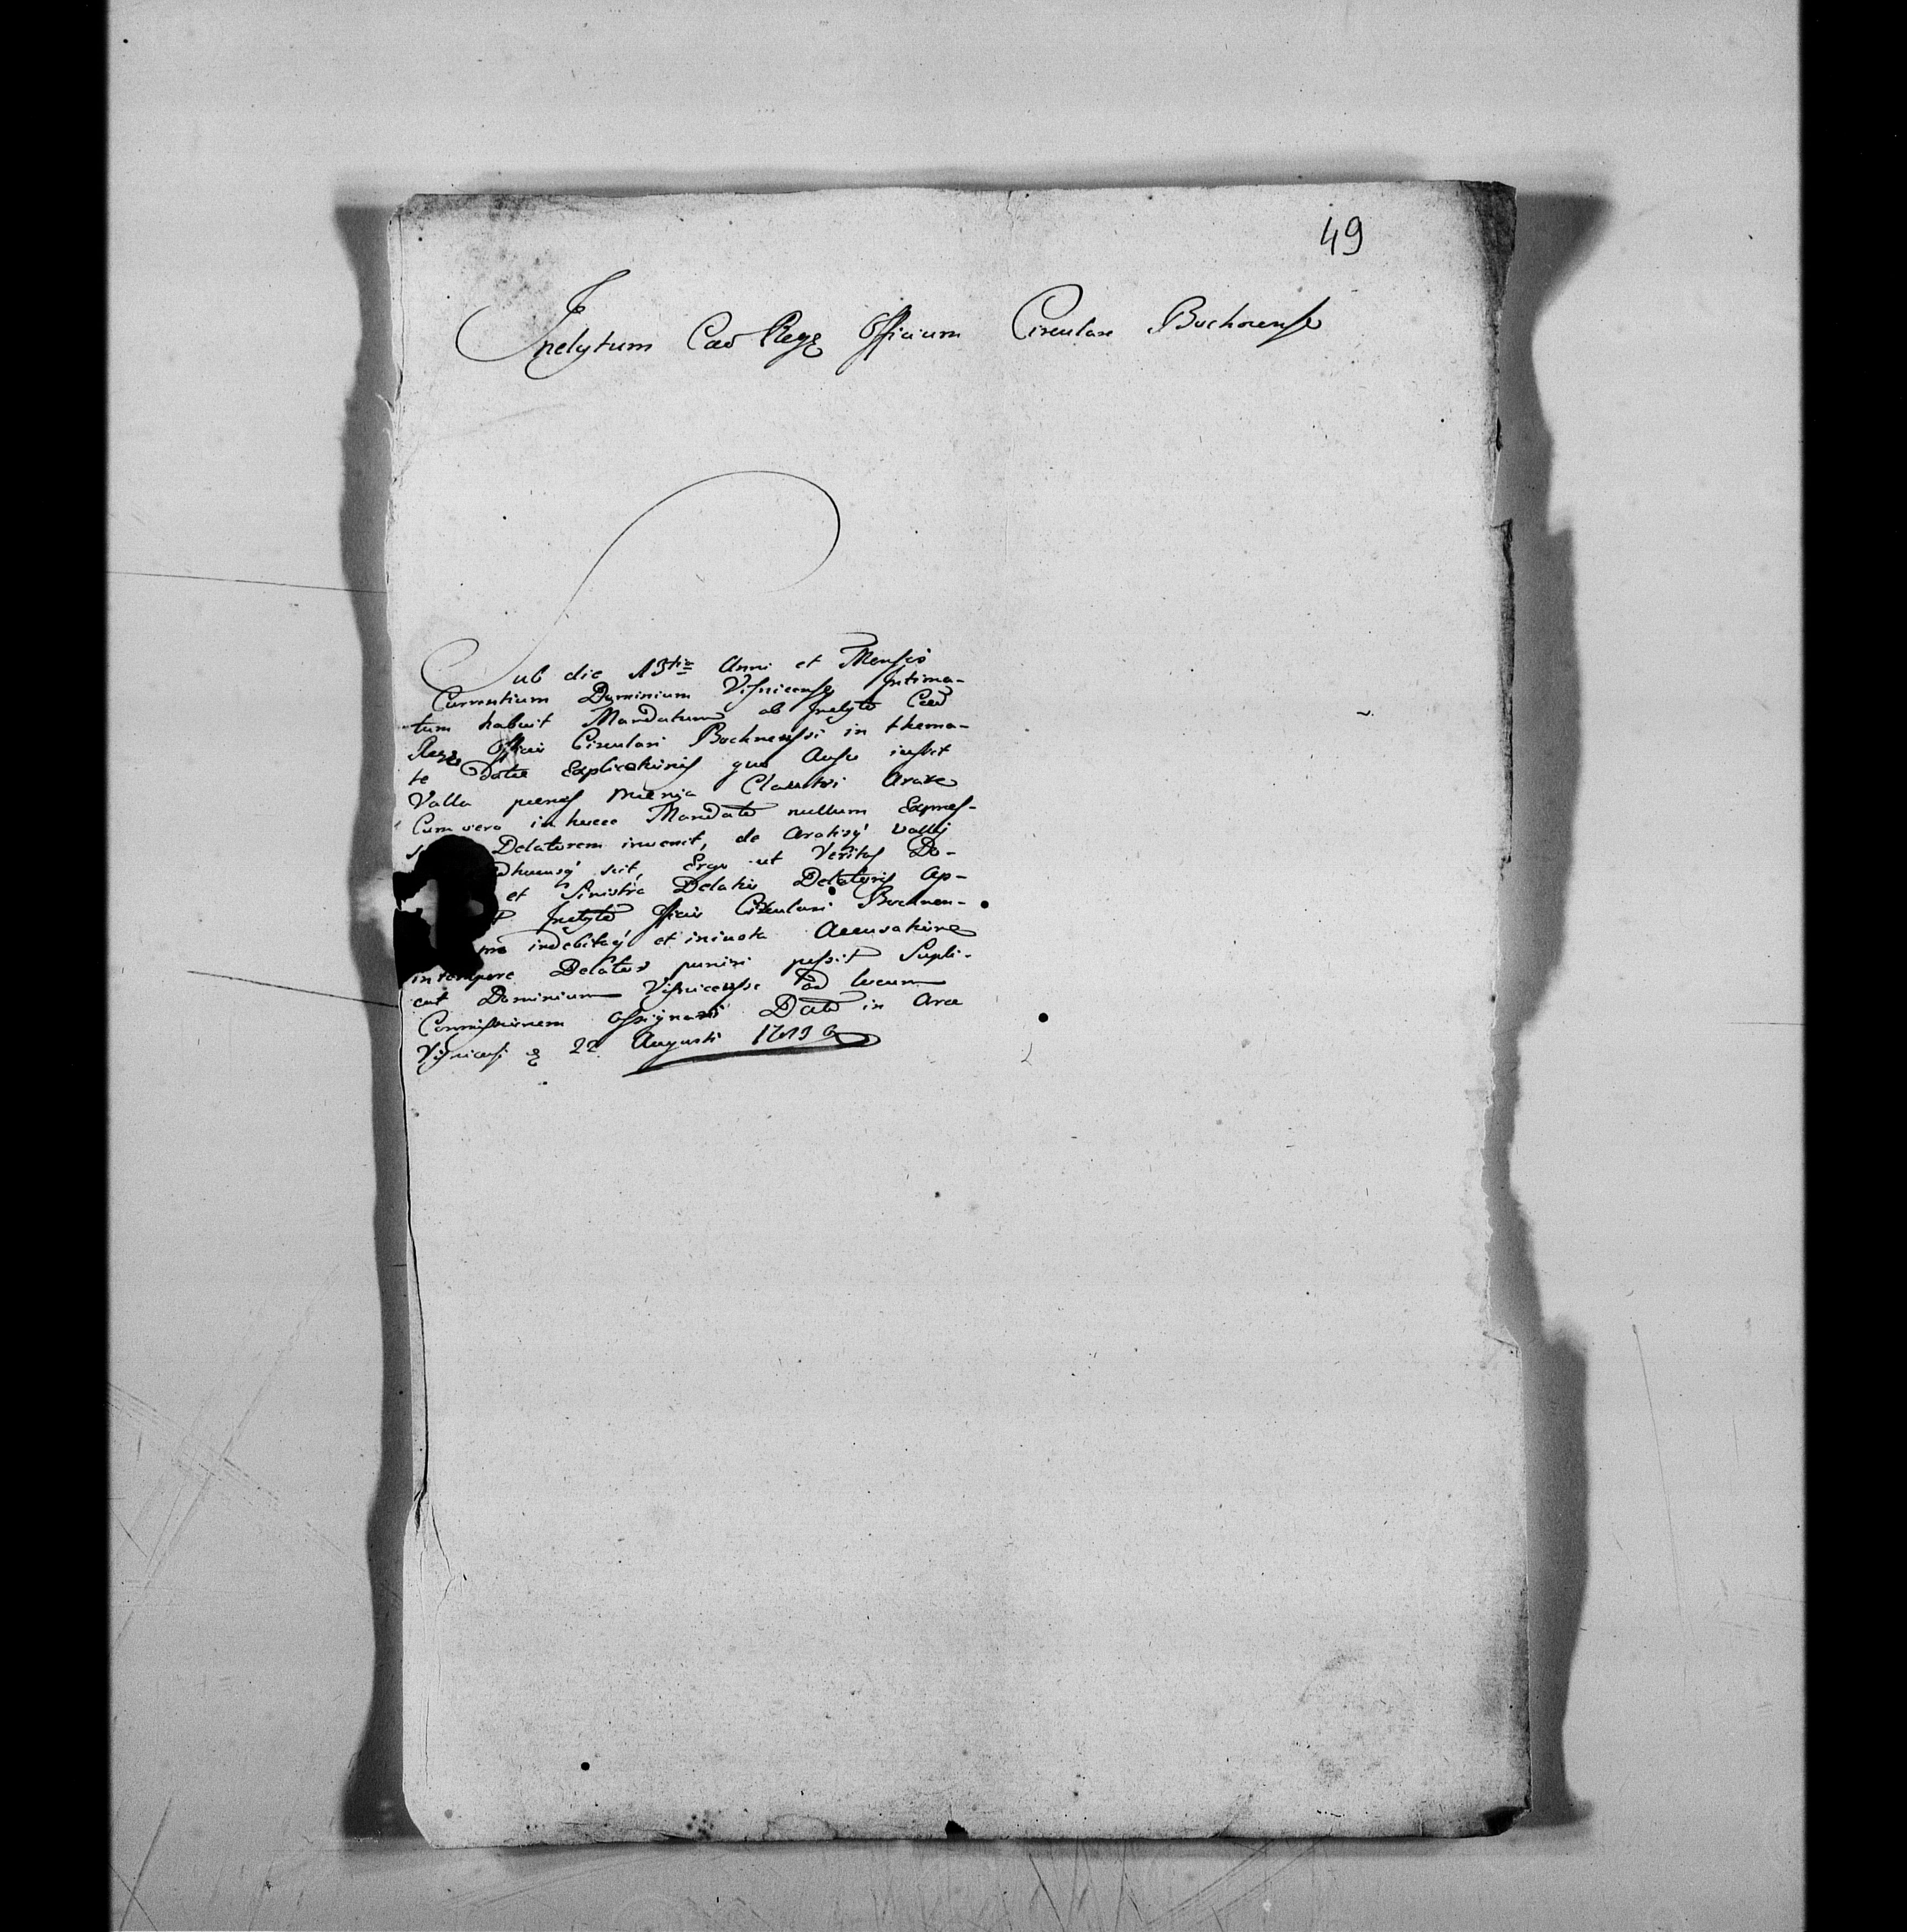 49
Inclytum Caes Regx Officium Circulare Bochnense
Sub die 13tia Anni et Mensis
Currentium Dominium Visnicense Intima-
tum habuit Mandatum ab Inclyto Caes
Regx Officio Circulari Bochnensi in thema-
te Datae Explicationis quo Ausu iussit
Valla penes Maenia Claustri Arare
Cum vero in hocce Mandato nullum Expres-
Delatorem invenit, de Aratis vallis
sit, Ergo ut Veritas Do-
et Sinistra Delatio Delatoris Ap-
Inclyto fficio Circulari Bochnen-
indebita et iniusta Accusatione
in tempore Delator puniri possit Supli-
cat Dominium Visnicense ad locum
Commissionem Assignari Dato in Arce
Visnicensi 22 Augusti